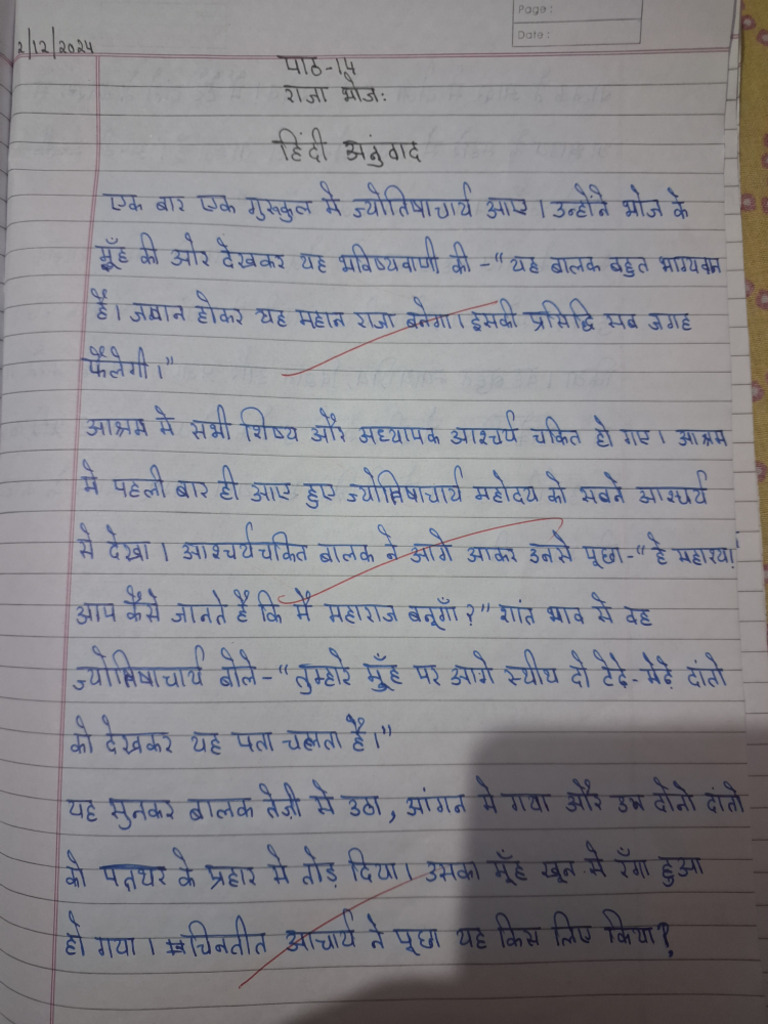 Page :
Date :
2/12/2024
पाठ-14
राजा भोजः
हिंदी अनुंवाद
एक बार एक गुरुकुल मे ज्योतिषाचार्य आए । उन्होंने भोज के
मूँह की ओर देखकर यह भविष्यवाणी की -“ यह बालक बहुत भाग्यवान
है। जवान होकर यह महान राजा बनेगा । इसकी प्रसिद्धि सब जगह
फैलेगी।”
आश्रम मे सभी शिष्य और अध्यापक आश्चर्य चकित हो गए। आश्रम
मे पहली बार ही आए हुए ज्योतिषाचार्य महोदय को सबने आश्चर्य
से देखा । आश्चर्यचकित बालक ने आगे आकर उनसे पूछा-“ हे महाश्य!
आप कैसे जानते है कि मै महाराज बनूगाँ?” शांत भाव से वह
ज्योतिषाचार्य बोले -“ तुम्हारे मूँह पर आगे स्थीय दो टेदे-मेढ़े दांतो
को देखकर यह पता चलता है।”
यह सुनकर बालक तेज़ी से उठा , आंगन मे गया और उन दोनो दांतो
को पत्तथर के प्रहार से तोड़ दिया। उसका मूँह खून से रँगा हुआ
हो गया । चिनतीत आचार्य ने पूछा यह किस लिए किया?